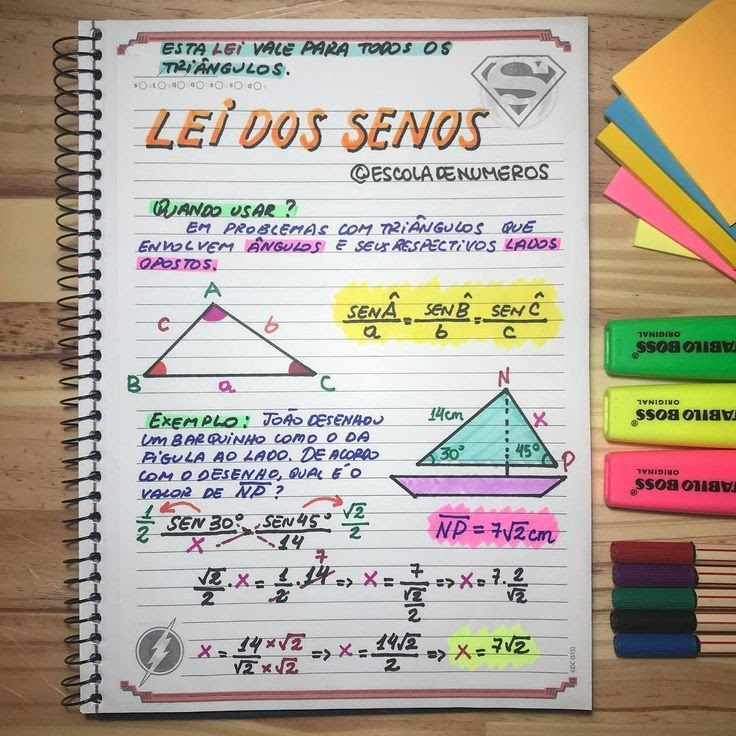 ESTA LEI VALE PARA TODOS OS
TRIÂNGULOS.
S T Q Q S S D
LEI DOS SENOS
©ESCOLADENUMEROS
QUANDO USAR?
EM PROBLEMAS COM TRIÂNGULOS QUE
ENVOLVEM ÂNGULOS E SEUS RESPECTIVOS LADOS
OPOSTOS.
A
c b
B a C
SEN Â/a = SEN B̂/b = SEN Ĉ/c
EXEMPLO: JOÃO DESENHOU
UM BARQUINHO COMO O DA
FIGULA AO LADO. DE ACORDO
COM O DESENHO, QUAL É O
VALOR DE N̅P̅?
N
14cm X
30° 45° P
1/2 SEN 30°/X = SEN 45°/14 √2/2
N̅P̅ = 7√2 cm
√2/2 · X = 1/2 · 14 7 => X = 7/(√2/2) => X = 7 · 2/√2
X = 14 ×√2/√2 ×√2 => X = 14√2/2 => X = 7√2
STABILO BOSS
ORIGINAL
STABILO BOSS
ORIGINAL
STABILO BOSS
ORIGINAL